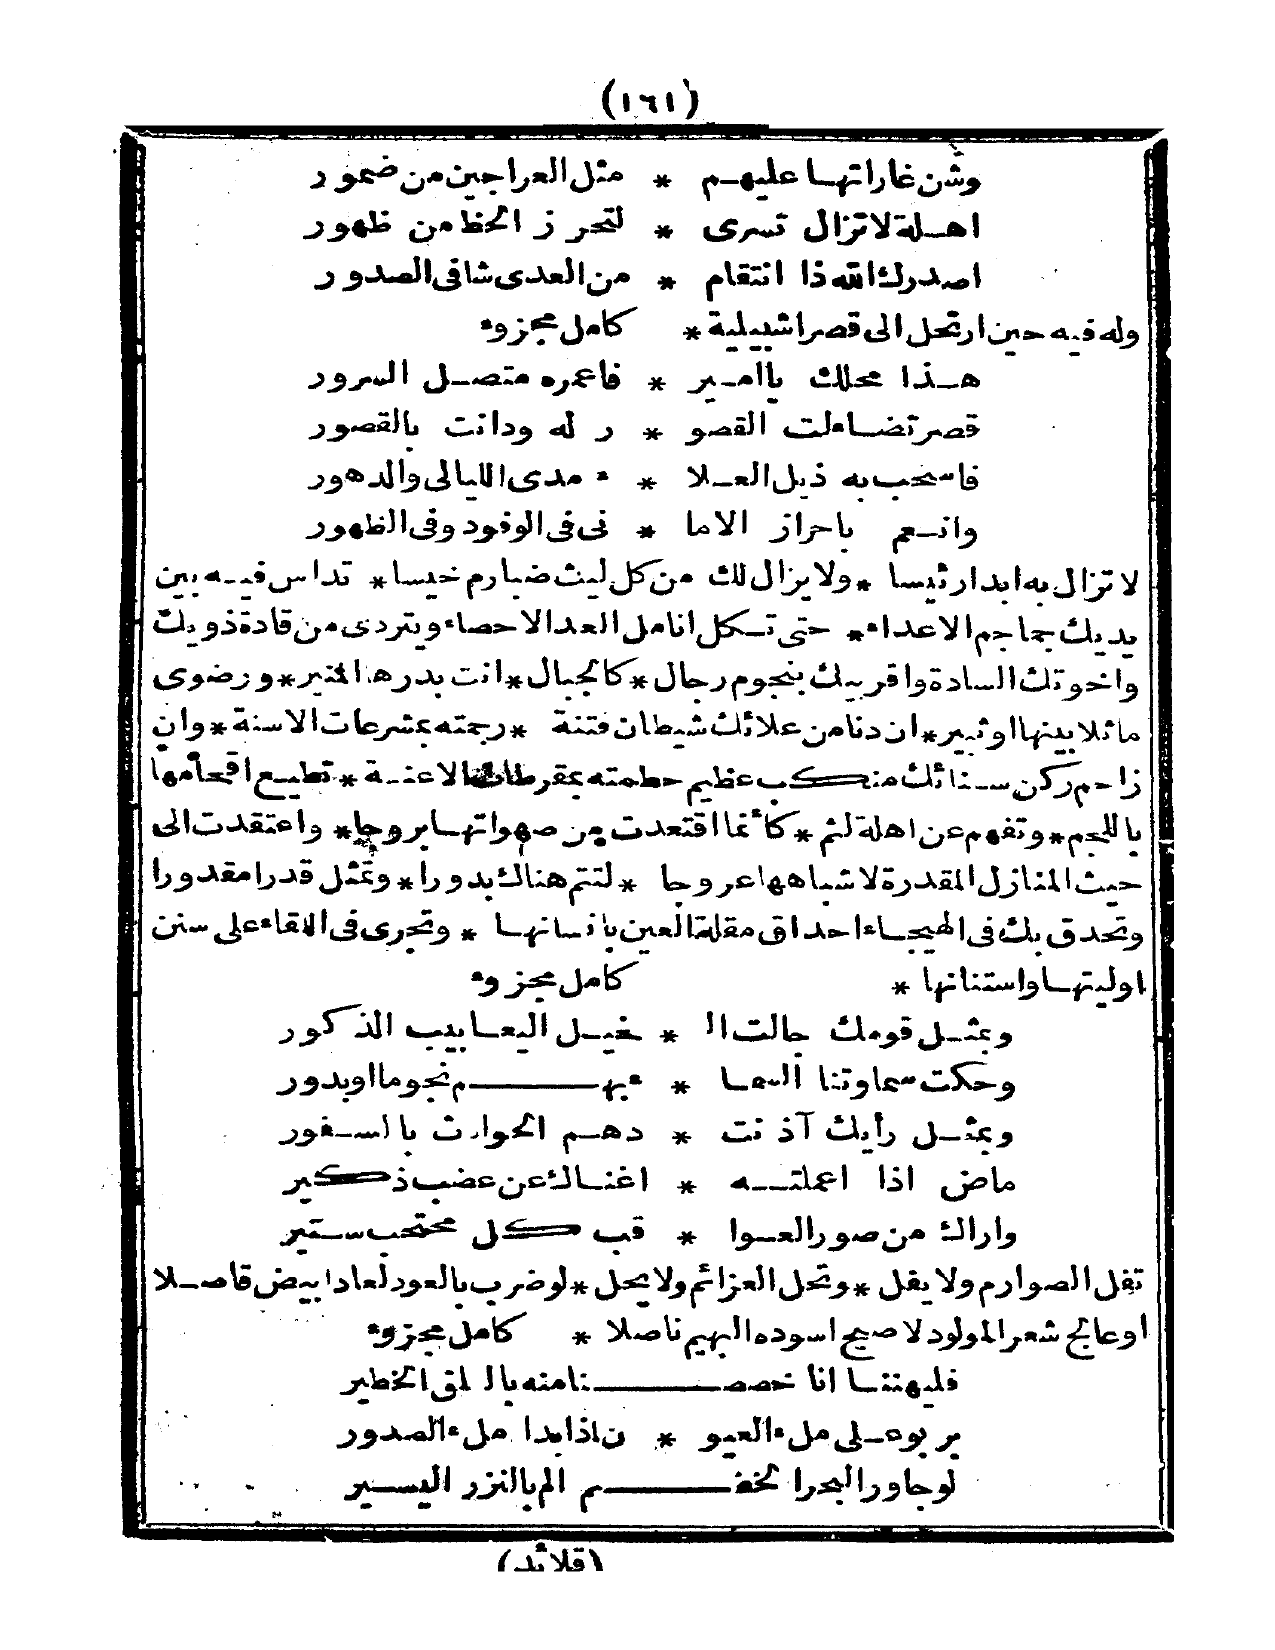 (١٦١)
وشن غاراتها عليهم * مثل العراجين من ضمور
اهلة لا تزال تسرى * لتحرز الحظ من ظهور
اصدرك الله ذا انتقام * من العدى شافى الصدور
وله فيه حين ارتحل الى قصر اشبيلية * كامل مجزوء
هذا محلك ياامير * فاعمره متصل السرور
قصر تضاءلت القصو * ر له ودانت بالقصور
فاسحب به ذيل العلا * ء مدى الليالى والدهور
وانعم باحراز الاما * نى فى الوفود وفى الظهور
لا تزال به ابدا رئيسا * ولا يزال لك من كل ليث ضبارم خيسا * تداس فيه بين
يديك جماجم الاعداء * حتى تكل انامل العد الاحصاء ويتردى من قادة ذويك
واخوتك السادة واقربيك بنجوم رجال * كالجبال * انت بدرها المنير * ورضوى
ماثلا بينها اوثبير * ان دنا من علائك شيطان فتنة * رجمته بمشرعات الاسنة * وان
زاحم ركن سنائك منكب عظيم حطمته بمقرطات الاعنة * تطيع اقحامها
باللجم * وتفهم عن اهلة لثم * كأنما اقتعدت من صهواتها بروجا * واعتقدت الى
حيث المنازل المقدرة لاشباهها عروجا * لتتم هناك بدورا * وتمثل قدرا مقدورا
وتحدق بك فى الهيجاء احداق مقلة العين بانسانها * وتجرى فى اللقاء على سنن
اوليتها واستنانها * كامل مجزوء
وبمثل قومك جالت ال * خيل اليعابيب الذكور
وحكت سماوتنا السما * ء بهم نجوما اوبدور
وبمثل رأيك آذنت * دهم الحوادث بالسفور
ماض اذا اعملته * اغناك عن عضب ذكير
واراك من صور العوا * قب كل محتجب ستير
تفل الصوارم ولا يفل * وتحل العزائم ولا يحل * لو ضرب بالعود لعاد ابيض قاصلا
اوعالج شعر المولود لاصبح اسوده البهيم ناصلا * كامل مجزوء
فليهننا انا خصصنا منه بالعلق الخطير
يربو على ملء العيو * ن اذا بدا ملء الصدور
لوجاور البحر الخضم الم بالنزر اليسير
(قلائد)